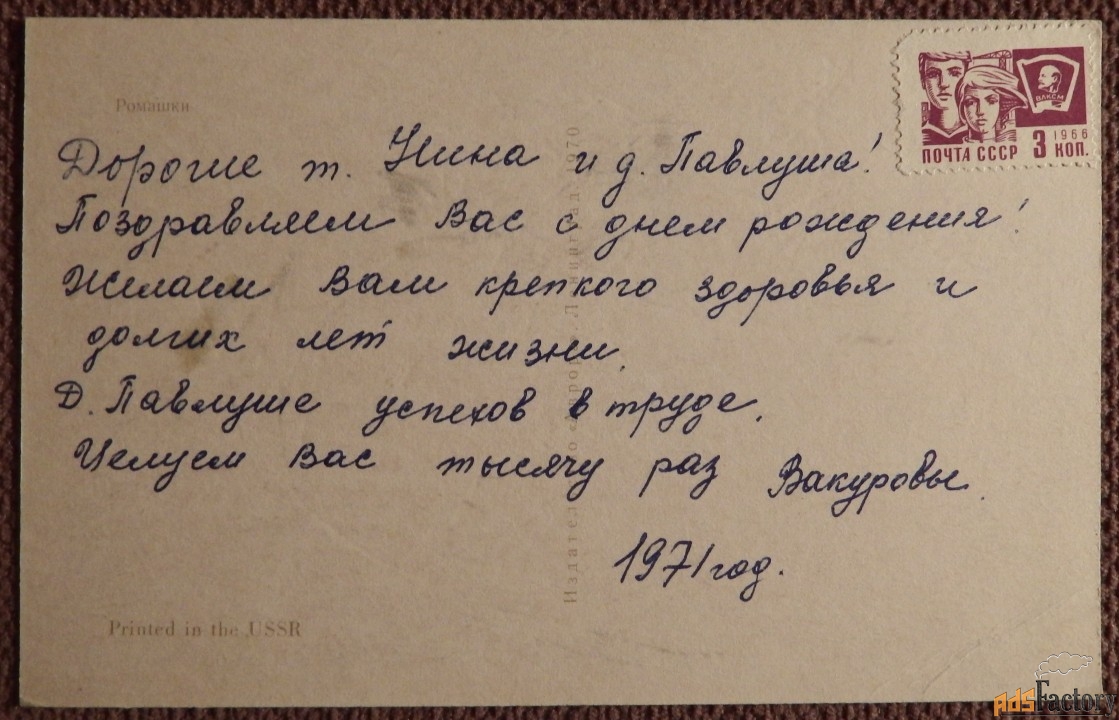 Ромашки
ВЛКСМ
1966
ПОЧТА СССР 3 КОП.
Дорогие т. Нина и д. Павлуша!
Поздравляем Вас с днем рождения!
Желаем Вам крепкого здоровья и
долгих лет жизни.
Д. Павлуше успехов в труде.
Целуем Вас тысячу раз Вакуровы.
1971 год.
Издательство «Аврора». Ленинград. 1970
Printed in the USSR
adsFactory